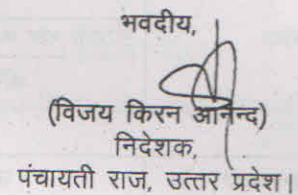 भवदीय,
(विजय किरन आनन्द)
निदेशक,
पंचायती राज, उत्तर प्रदेश।